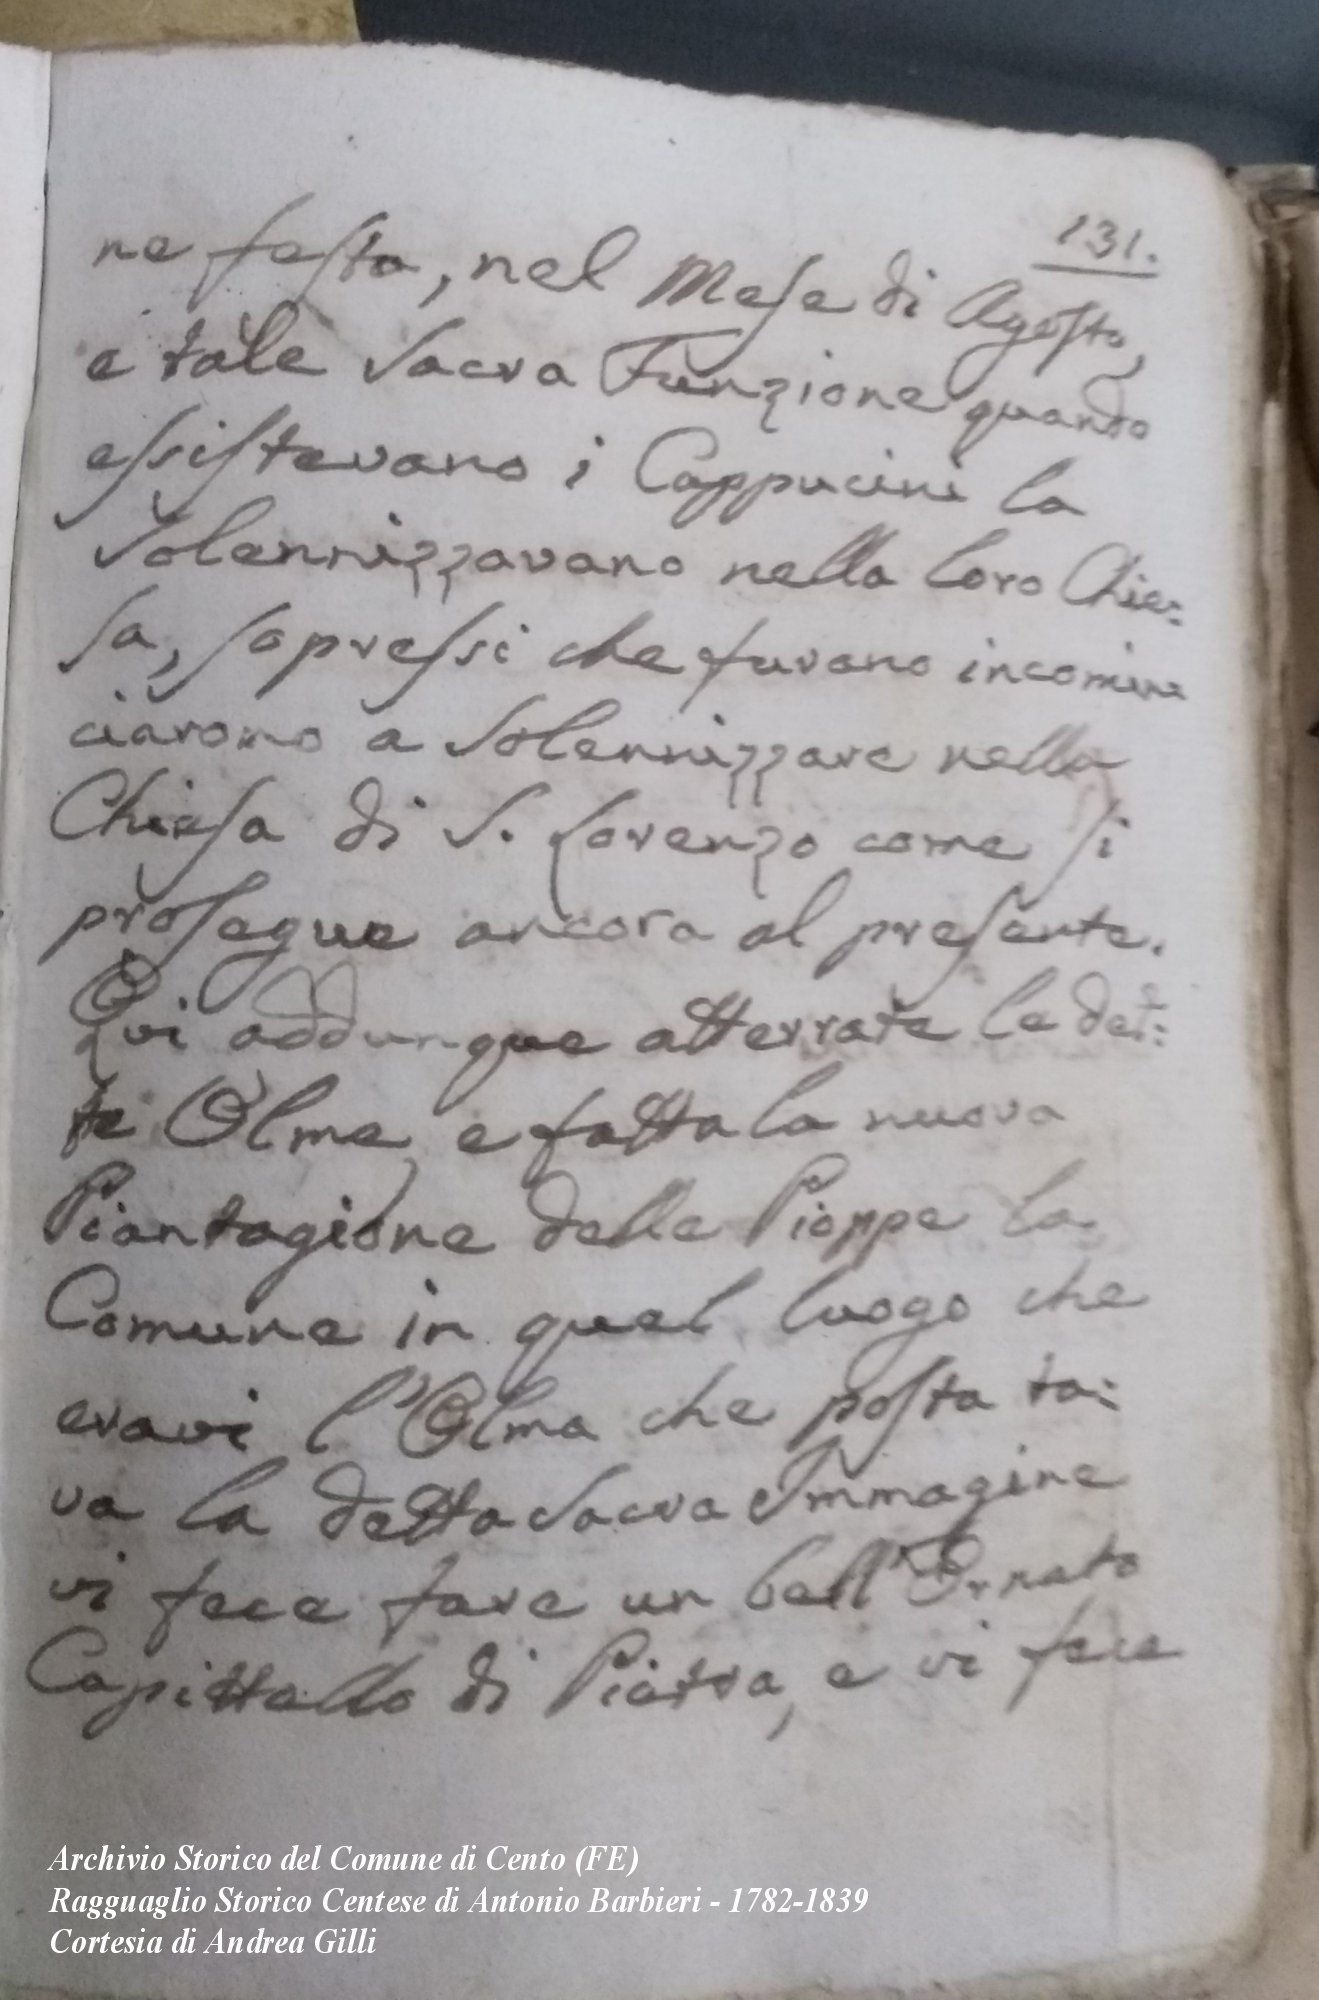 131.
ne festa, nel Mese di Agosto,
e tale Sacra Funzione quando
essistevano i Cappucini la
Solennizzavano nella loro Chie:
sa, sopressi che furono incomin
ciarono a Solennizzare nella
Chiesa di S. Lorenzo come si
prosegue ancora al presente.
Qui addunque atterrate le det:
te Olme, e fatta la nuova
Piantagione delle Pioppe la
Comune in quel luogo che
eravi l'Olma che posta ta:
va la detta Sacra Immagine
vi fece fare un bell'Ornato
Capittello di Pietra, e vi fece
Archivio Storico del Comune di Cento (FE)
Ragguaglio Storico Centese di Antonio Barbieri - 1782-1839
Cortesia di Andrea Gilli